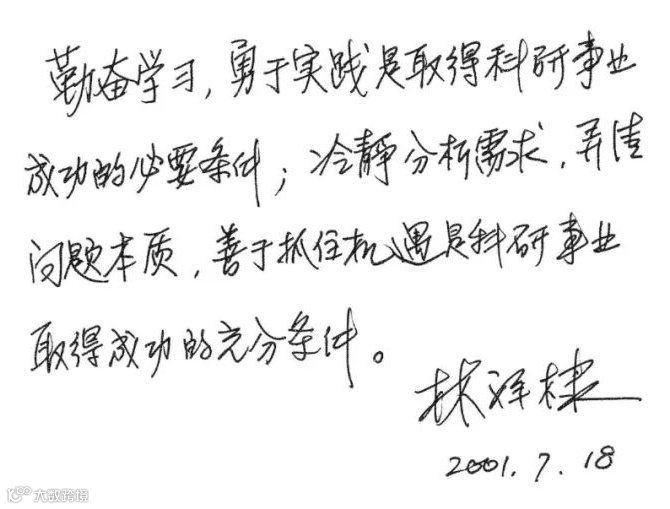 勤奋学习，勇于实践是取得科研事业
成功的必要条件；冷静分析需求，弄清
问题本质，善于抓住机遇是科研事业
取得成功的充分条件。
林祥棣
2001.7.18
大数跨境